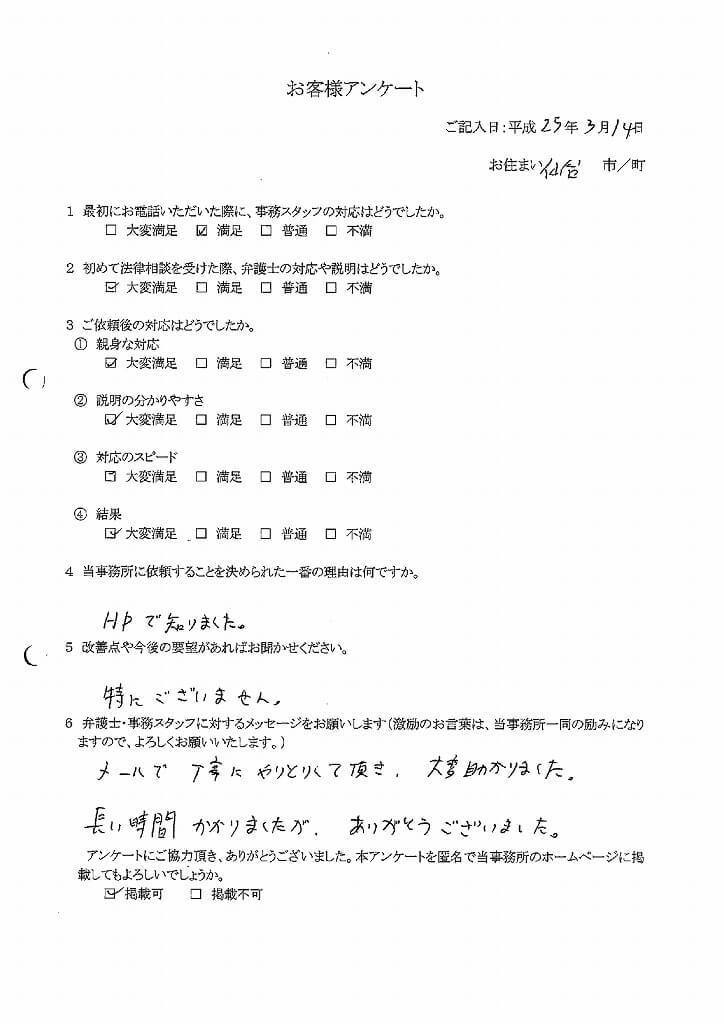 お客様アンケート
ご記入日:平成25年3月14日
お住まい 仙台 市/町
1 最初にお電話いただいた際に、事務スタッフの対応はどうでしたか。
□ 大変満足 ☑ 満足 □ 普通 □ 不満
2 初めて法律相談を受けた際、弁護士の対応や説明はどうでしたか。
☑ 大変満足 □ 満足 □ 普通 □ 不満
3 ご依頼後の対応はどうでしたか。
① 親身な対応
☑ 大変満足 □ 満足 □ 普通 □ 不満
② 説明の分かりやすさ
☑ 大変満足 □ 満足 □ 普通 □ 不満
③ 対応のスピード
☑ 大変満足 □ 満足 □ 普通 □ 不満
④ 結果
☑ 大変満足 □ 満足 □ 普通 □ 不満
4 当事務所に依頼することを決められた一番の理由は何ですか。
HPで知りました。
5 改善点や今後の要望があればお聞かせください。
特にございません。
6 弁護士・事務スタッフに対するメッセージをお願いします(激励のお言葉は、当事務所一同の励みになり
ますので、よろしくお願いいたします。)
メールで丁寧にやりとりして頂き、大変助かりました。
長い時間かかりましたが、ありがとうございました。
アンケートにご協力頂き、ありがとうございました。本アンケートを匿名で当事務所のホームページに掲
載してもよろしいでしょうか。
☑ 掲載可 □ 掲載不可